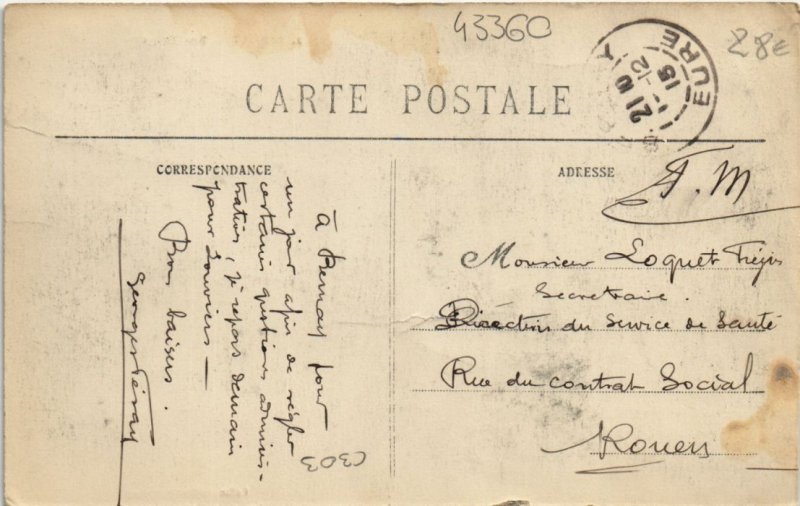 43360
28€
CARTE POSTALE
EURE
21
15
CORRESPONDANCE
ADRESSE
F. M
à Bernay pour
un jour afin de régler
certaines questions adminis-
tratives, je repars demain
pour Louviers —
Bons baisers.
Georges
Monsieur Loquet
Secretaire.
Direction du Service de Santé
Rue du contrat Social
Rouen
C303